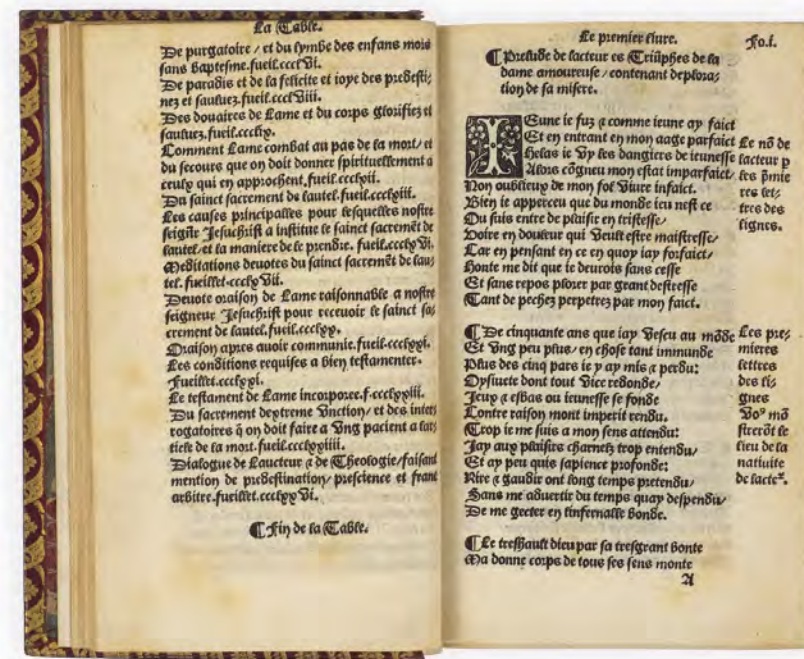 La Table.
De purgatoire / et du lymbe des enfans mors
sans baptesme.fueil.ccclvi.
De paradis et de la felicite et ioye des predesti-
nez et sauluez.fueil.ccclviii.
Des douaires de Lame et du corps glorifiez et
sauluez.fueil.ccclix.
Comment Lame combat au pas de la mort/et
du secours que on doit donner spirituellement a
ceulx qui en approchent.fueil.ccclxii.
Du sainct sacrement de lautel.fueil.ccclxiii.
Les causes principalles pour lesquelles nostre
seignr̃ Jesuchrist a institue le sainct sacremẽt de
lautel/et la maniere de le prendre. fueil.ccclxvi.
Meditations deuotes du sainct sacremẽt de lau-
tel. fueillet.ccclxvii.
Deuote oraison de Lame raisonnable a nostre
seigneur Jesuchrist pour receuoir le sainct sa-
crement de lautel.fueil.ccclxx.
Oraison apres auoir communie.fueil.ccclxxi.
Les conditions requises a bien testamenter.
fueillet.ccclxxi.
Le testament de Lame incorporee.f.ccclxxiii.
Du sacrement dextreme Unction/et des inter-
rogatoires q̃ on doit faire a Ung pacient a lar-
ticle de la mort.fueil.ccclxxiiii.
Dialogue de Laucteur & de Theologie/faisant
mention de predestination/prescience et franc
arbitre.fueillet.ccclxxvi.
¶ Fin de la Table.
Le premier liure.
Fo.i.
¶ Prelude de lacteur es Triũphes de la
dame amoureuse / contenant deplora-
tion de sa misere.
IEune ie fuz & comme ieune ay faict
Et en entrant en mon aage parfaict
Helas ie vy les dangiers de ieunesse
Alors cõgneu mon estat imparfaict/
Non oublieux de mon fol viure infaict.
Bien ie apperceu que du monde ieu nest ce
Ou suis entre de plaisir en tristesse/
Voire en douleur qui veult estre maistresse/
Car en pensant en ce en quoy iay forfaict/
Honte me dit que ie deurois sans cesse
Et sans repos plorer par grant destresse
Tant de pechez perpetrez par mon faict.
Le nõ de
lacteur p
les p̃mie
res let-
tres des
lignes.
¶ De cinquante ans que iay vescu au mõde
Et Ung peu plus/en chose tant immunde
Plus des cinq pars ie y ay mis & perdu:
Oysiuete dont tout vice redonde/
Jeux & esbas ou ieunesse se fonde
Contre raison mont imperit rendu.
Trop ie me suis a mon sens attendu:
Jay aux plaisirs charnelz trop entendu/
Et ay peu quis sapience profonde:
Rire & gaudir ont long temps pretendu/
Sans me aduertir du temps quay despendu/
De me gecter en linfernalle bonde.
Les pre-
mieres
lettres
des li-
gnes
vo⁹ mõ
strerõt le
lieu de la
natiuite
de lacteᷣ.
¶ Le treshault dieu par sa tresgrant bonte
Ma donne corps de tous ses sens monte
A